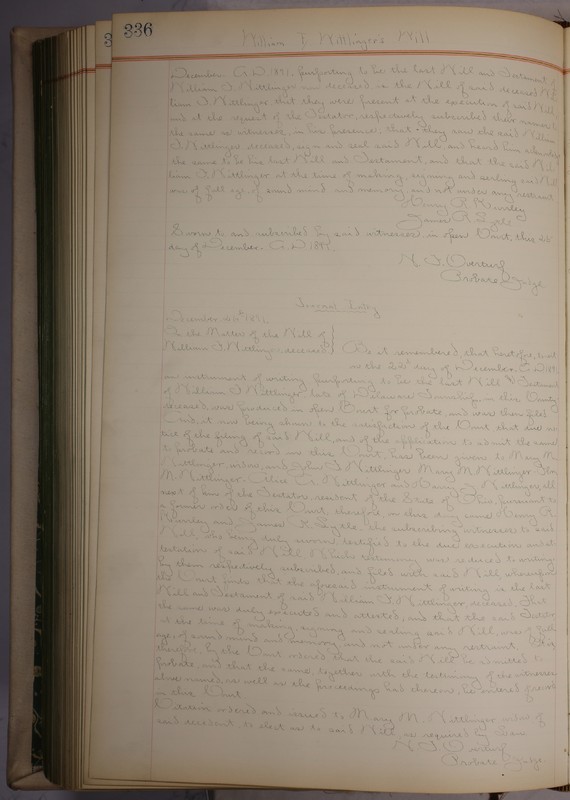 336
William T. Wittlinger's Will
December A.D. 1891, purporting to be the last Will and Testament of
William T. Wittlinger now deceased, is the Will of said deceased Wil
liam T. Wittlinger, that they were present at the execution of said Will
and at the request of the Testator, respectively subscribed their names to
the same as witnesses, in his presence, that they saw the said William
T. Wittlinger, deceased, sign and seal said Will, and heard him acknowledge
the same to be his last Will and Testament, and that the said Wil
liam T. Wittlinger at the time of making, signing and sealing said Will
was of full age, of sound mind and memory, and not under any restraint
Henry P.
James R. Lytle
Sworn to and subscribed by said witnesses, in open Court, this
day of December A.D. 1891.
N. F. Overturf
Probate Judge
Journal Entry
December 1891
In the Matter of the Will of
William T. Wittlinger deceased
Be it remembered, that heretofore, to wit
on the day of December A.D. 1891
an instrument of writing purporting to be the last Will & Testament
of William T. Wittlinger late of Delaware Township in this County
deceased, was produced in open Court for probate, and was then filed
and, it now being shown to the satisfaction of the Court that due no
tice of the filing of said Will, and of the application to admit the same
to probate and record in this Court, has been given to Mary M.
Wittlinger widow, and John J. Wittlinger, Mary M. Wittlinger,
M. Wittlinger, Alice A. Wittlinger and Henry J. Wittlinger, all
next of kin of the Testator, resident of the State of Ohio, pursuant to
a former order of this Court, therefore, on this day came Henry P.
and James R. Lytle, the subscribing witnesses to said
Will, who being duly sworn, testified to the due execution and at
testation of said Will, Which testimony was reduced to writing
by them respectively subscribed, and filed with said Will, whereupon
the Court finds that the aforesaid instrument of writing is the last
Will and Testament of said William T. Wittlinger, deceased, That
the same was duly executed and attested, and that the said Testator
at the time of making, signing and sealing said Will, was of full
age, of sound mind and memory, and not under any restraint. It is,
therefore, by the Court ordered that the said Will be admitted to
probate, and that the same, together with the testimony of the witnesses
above named, as well as the proceedings had thereon, be entered of record
in this Court
Citation ordered and issued to Mary M. Wittlinger, widow of
said decedent, to elect as to said Will, as required by Law
N. F. Overturf
Probate Judge